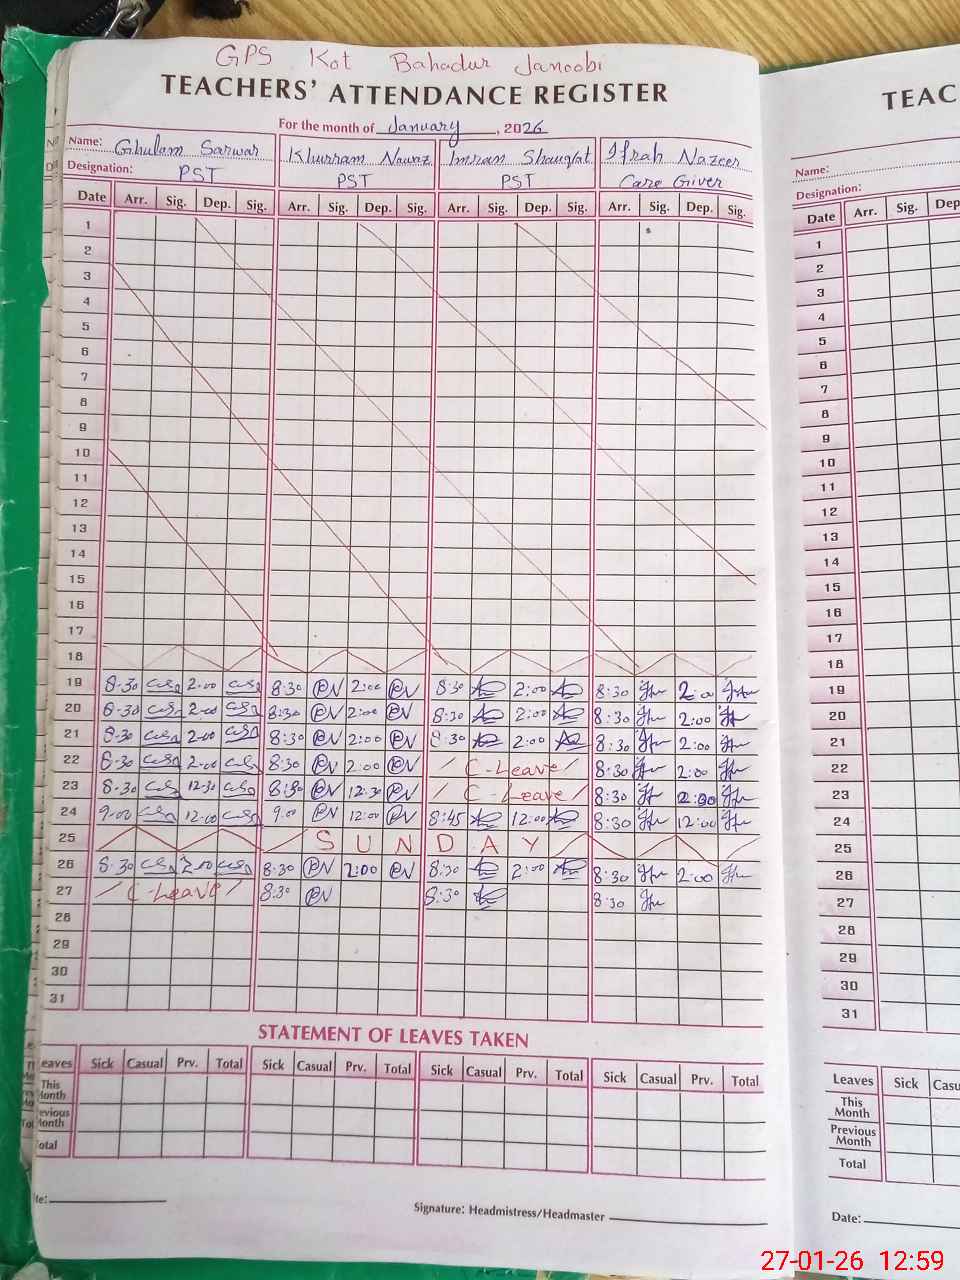 GPS Kot Bahadur Janoobi
TEACHERS' ATTENDANCE REGISTER
For the month of January, 2026
Name: Ghulam Sarwar Khurram Nawaz Imran Shauqat Ifrah Nazeer
Designation: PST PST PST Care Giver
Date Arr. Sig. Dep. Sig. Arr. Sig. Dep. Sig. Arr. Sig. Dep. Sig. Arr. Sig. Dep. Sig.
1
2
3
4
5
6
7
8
9
10
11
12
13
14
15
16
17
18
19 8:30 2:00 8:30 2:00 8:30 2:00 8:30 2:00
20 8:30 2:00 8:30 2:00 8:30 2:00 8:30 2:00
21 8:30 2:00 8:30 2:00 8:30 2:00 8:30 2:00
22 8:30 2:00 8:30 2:00 / C-Leave / 8:30 2:00
23 8:30 12:30 8:30 12:30 / C-Leave / 8:30
24 9:00 12:00 9:00 12:00 8:45 12:00 8:30 12:00
25 SUNDAY
26 8:30 2:00 8:30 2:00 8:30 2:00 8:30 2:00
27 / C-Leave / 8:30 8:30 8:30
28
29
30
31
STATEMENT OF LEAVES TAKEN
eaves Sick Casual Prv. Total Sick Casual Prv. Total Sick Casual Prv. Total Sick Casual Prv. Total
This
Month
evious
Month
otal
te:
Signature: Headmistress/Headmaster
TEAC
Name:
Designation:
Date Arr. Sig. Dep
1
2
3
4
5
6
7
8
9
10
11
12
13
14
15
16
17
18
19
20
21
22
23
24
25
26
27
28
29
30
31
Leaves Sick Casu
This
Month
Previous
Month
Total
Date:
27-01-26 12:59